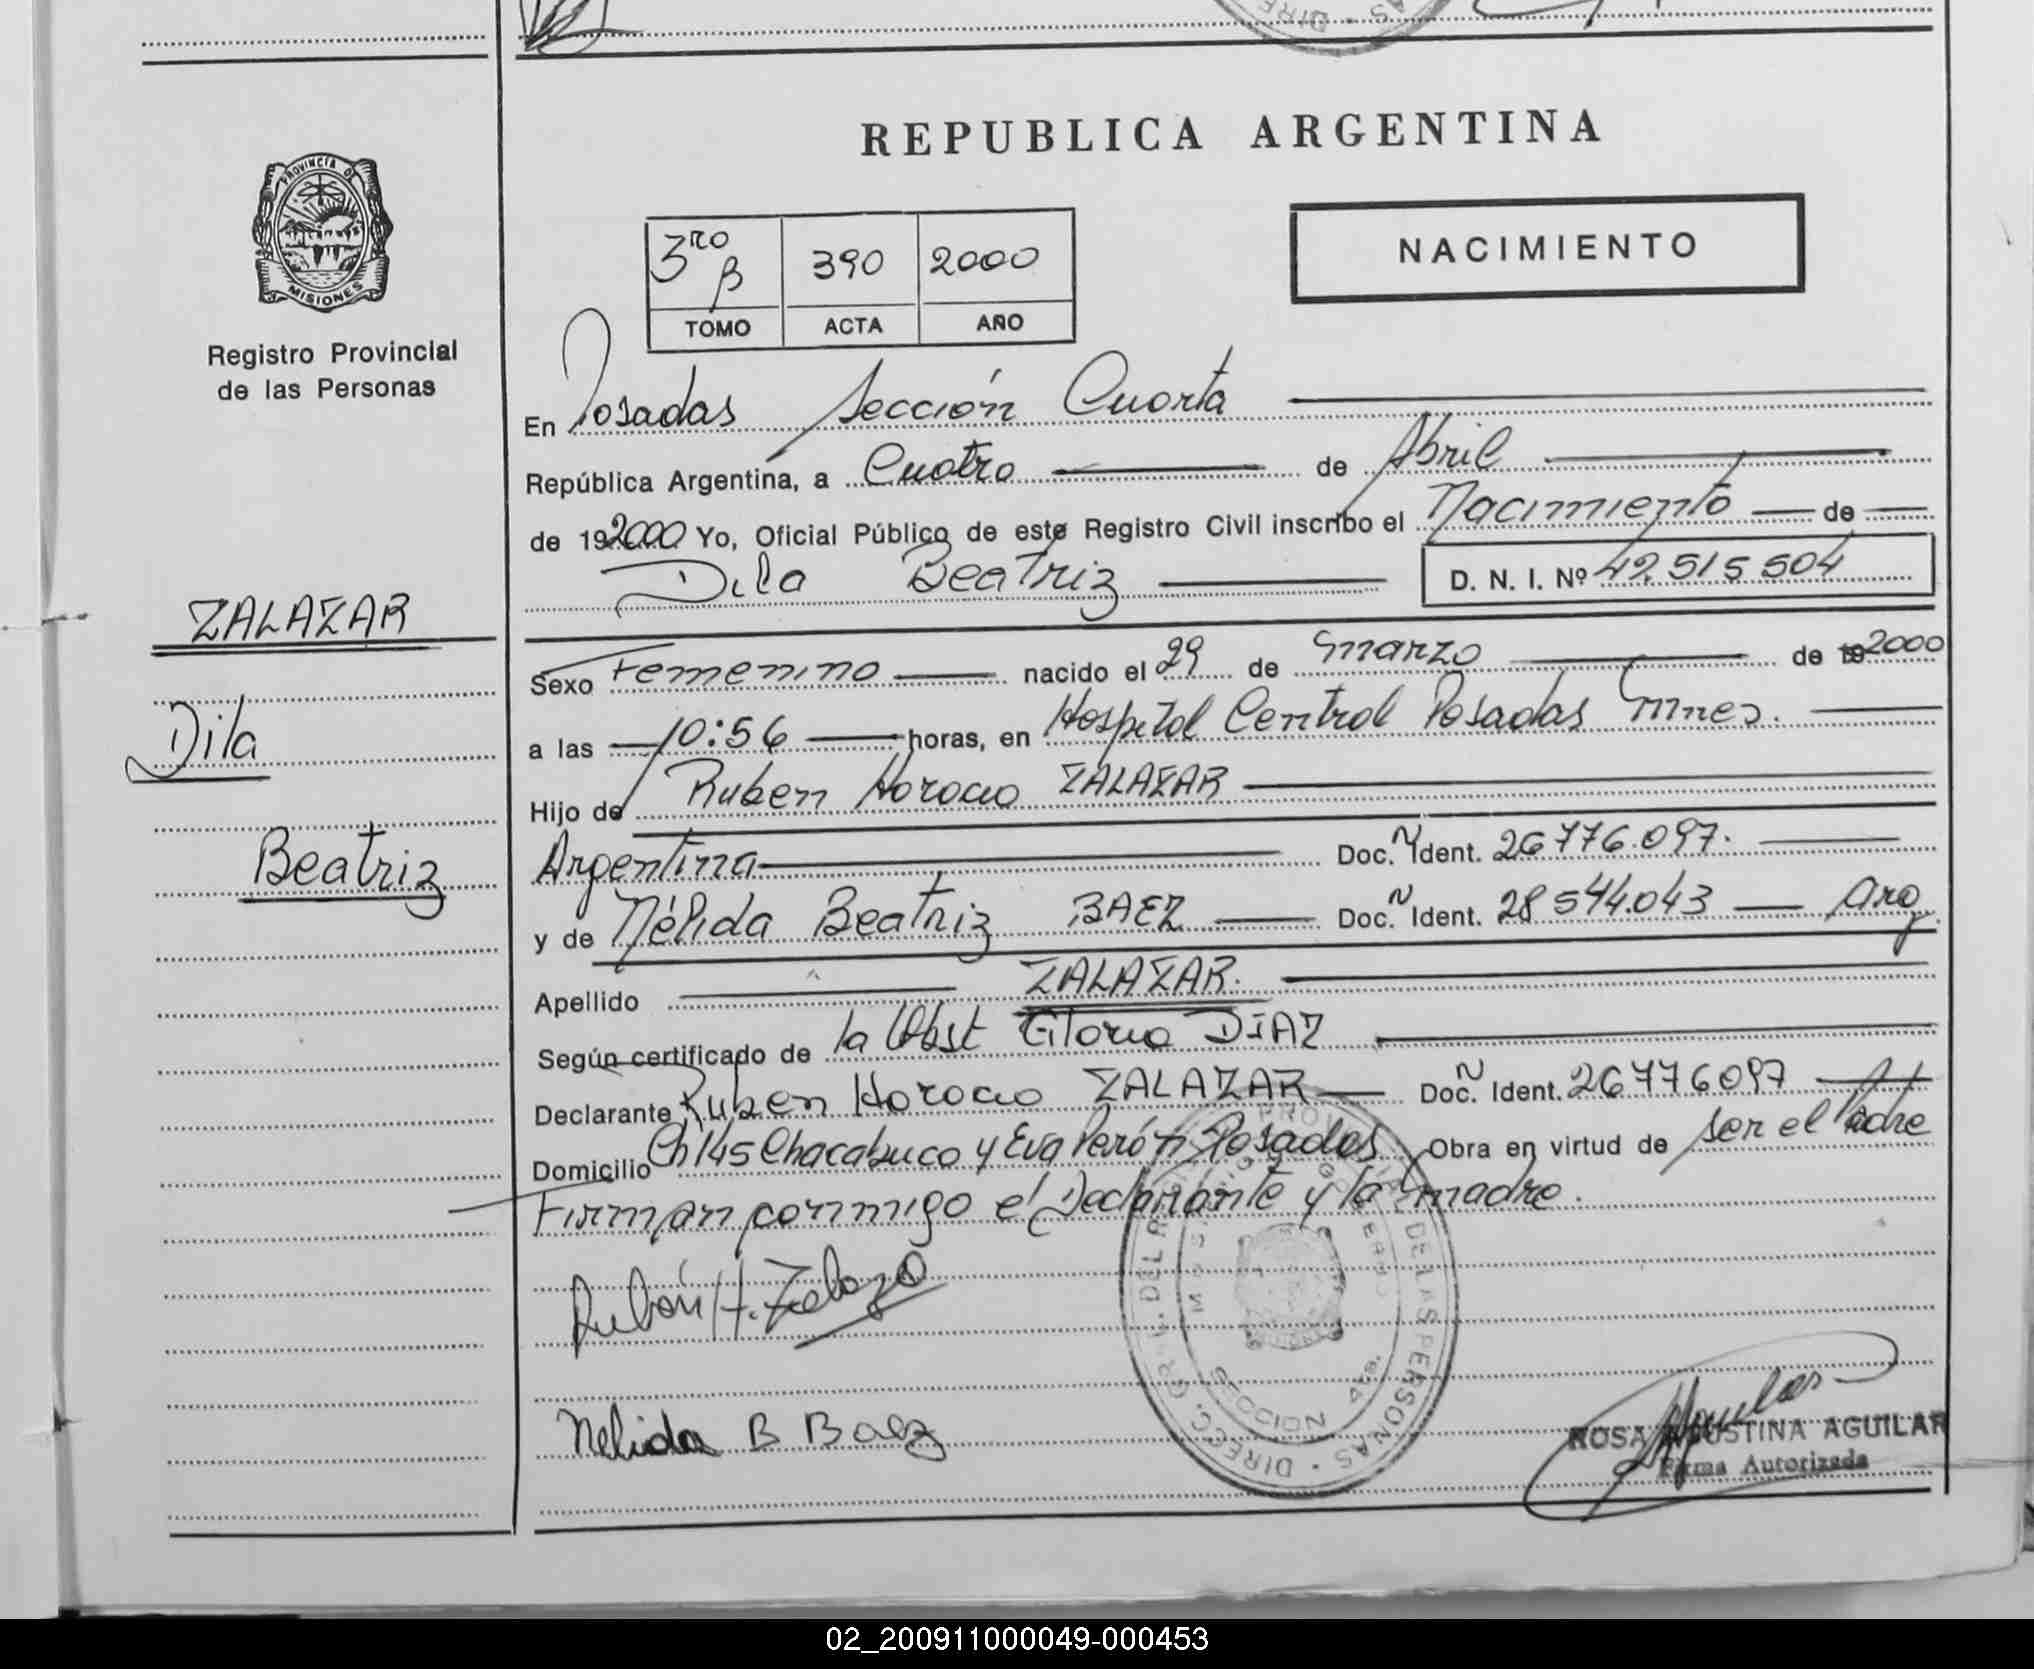 REPUBLICA ARGENTINA
NACIMIENTO
3ro B 390 2000
TOMO ACTA AÑO
PROVINCIA DE
MISIONES
Registro Provincial
de las Personas
ZALAZAR
Dila
Beatriz
En Posadas Sección Cuarta
República Argentina, a Cuatro de Abril
de 192000 Yo, Oficial Público de este Registro Civil inscribo el Nacimiento de
Dila Beatriz D. N. I. Nº 42.515504
Sexo Femenino nacido el 29 de marzo de 192000
a las 10:56 horas, en Hospital Central Posadas Mnes.
Hijo de Ruben Horacio ZALAZAR
Argentina Doc. N Ident. 26776.097.
y de Nélida Beatriz BAEZ Doc. N Ident. 28544.043 Arg.
Apellido ZALAZAR.
Según certificado de la Obst DIAZ
Declarante Ruben Horacio ZALAZAR Doc. N Ident. 26776097
Domicilio Ch 145 Chacabuco y Eva Perón Posadas Obra en virtud de ser el Padre
Firman conmigo el Declarante y la madre.
Rubén H. Zalazar
Nelida B Baez
DIRECC. GRAL. DEL REG. PROVINCIAL DE LAS PERSONAS
SECCION 4ta.
ROSA AGUSTINA AGUILAR
Firma Autorizada
02_200911000049-000453